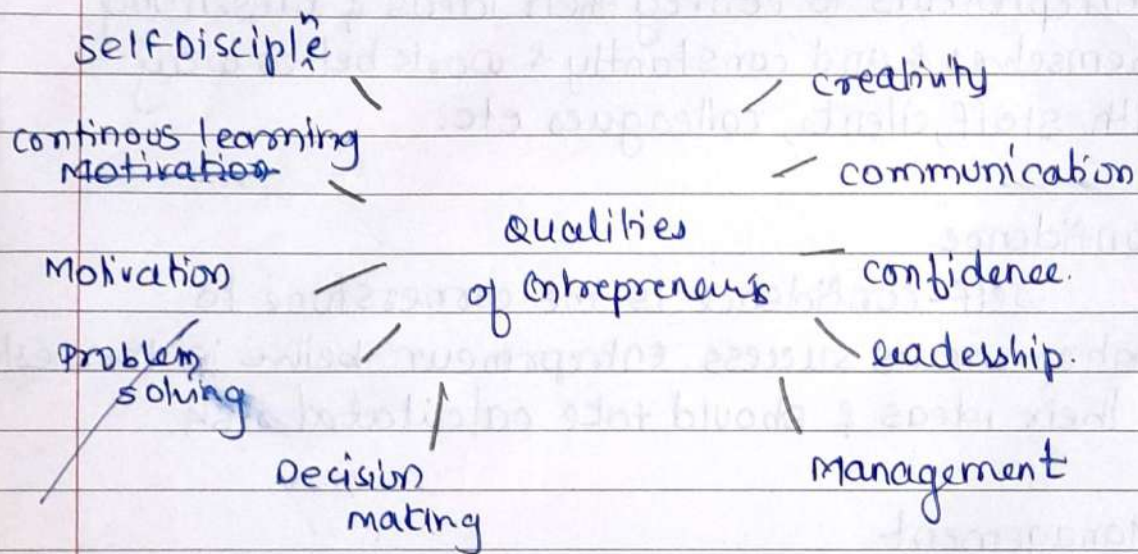 Self Disciplne
continous learning
Motivation
Motivation
Problem
solving
Decision
making
Qualities
of Entrepreneur's
creativity
communication
confidence.
leadership.
Management